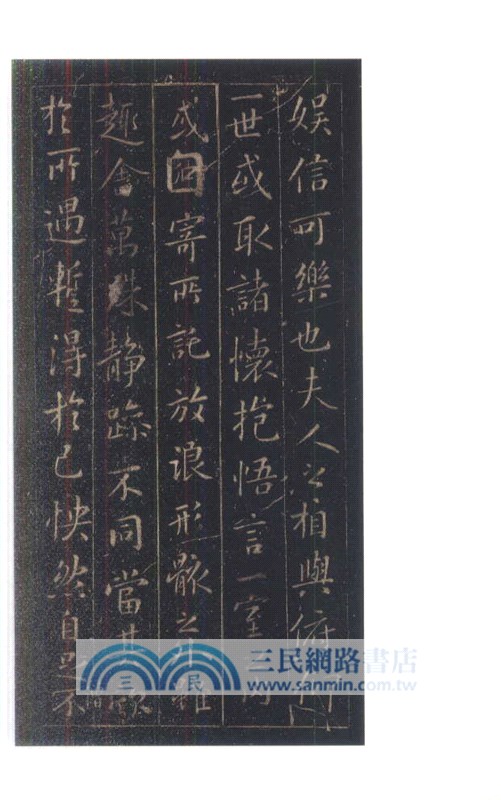 娱信可樂也夫人之相與俯仰
一世或取諸懷抱悟言一室之内
或因寄所託放浪形骸之外雖
趣舍萬殊静躁不同當其欣
於所遇蹔得於己怏然自足不
三民網路書店
www.sanmin.com.tw
三 民